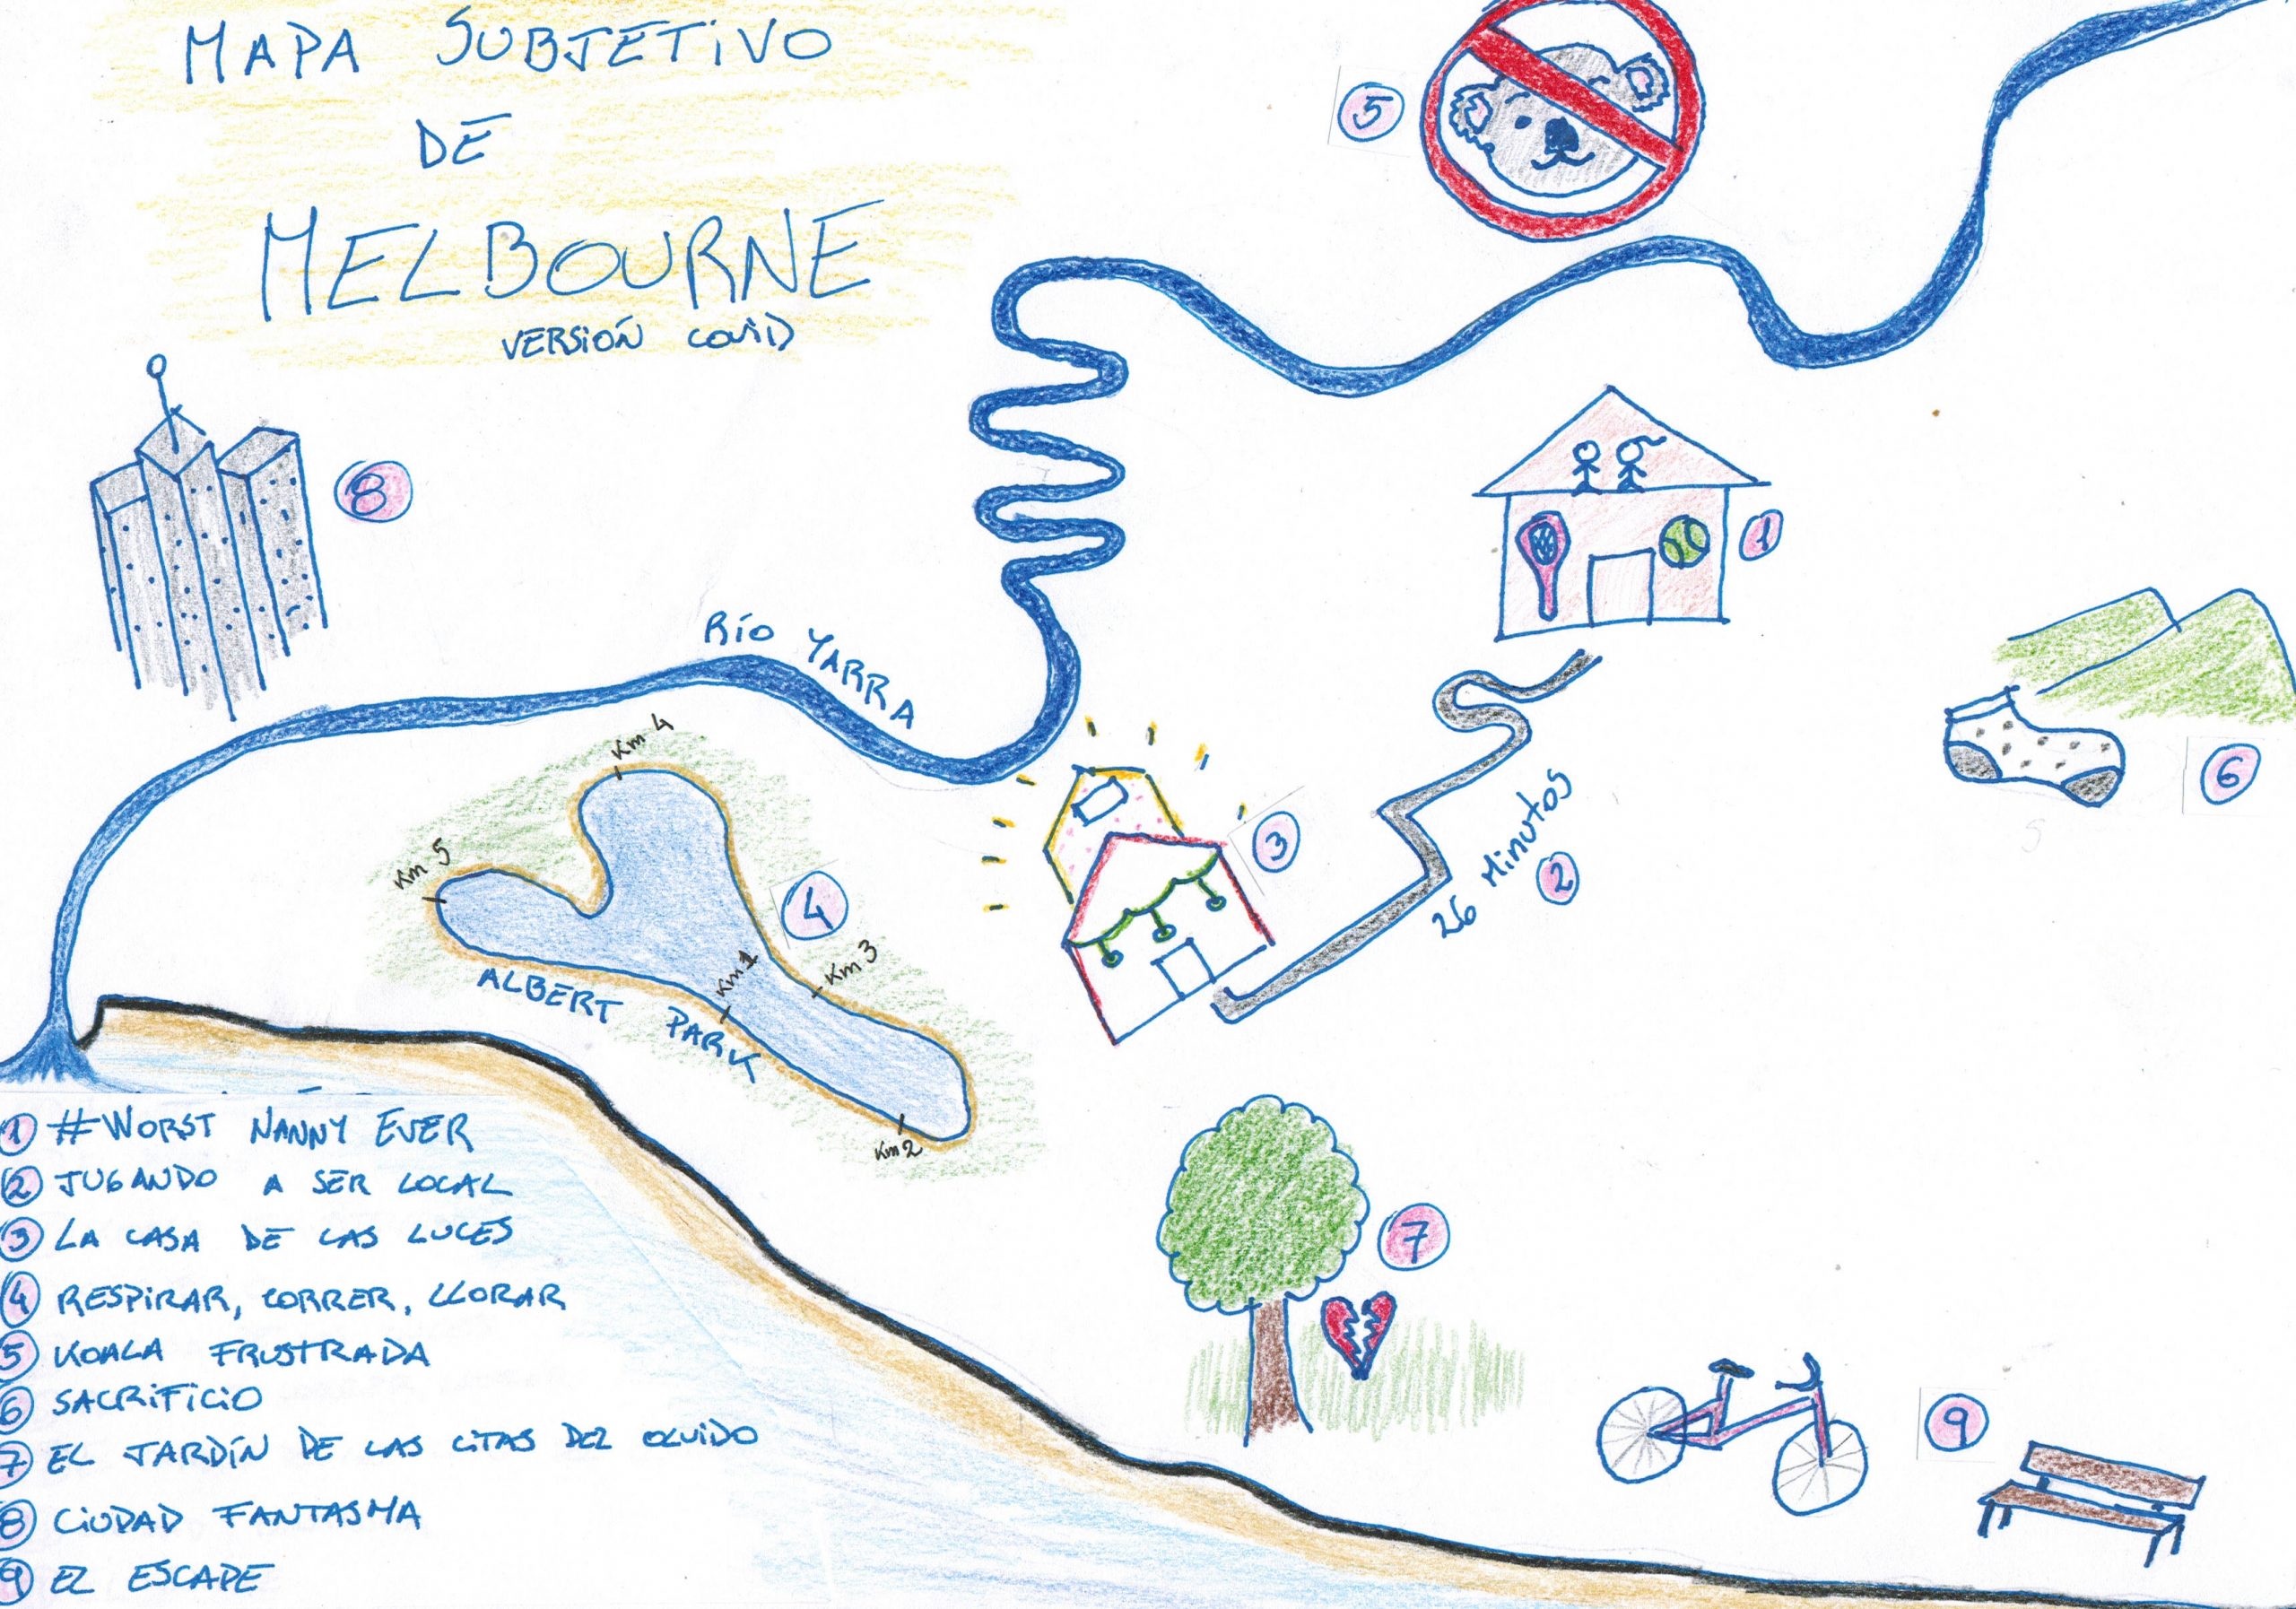 MAPA SUBJETIVO
DE
MELBOURNE
VERSIÓN COVID
5
8
1
RÍO YARRA
Km 4
6
26 Minutos
2
3
Km 5
4
Km 1
Km 3
ALBERT PARK
Km 2
7
9
1 #WORST NANNY EVER
2 JUGANDO A SER LOCAL
3 LA CASA DE LAS LUCES
4 RESPIRAR, CORRER, LLORAR
5 KOALA FRUSTRADA
6 SACRIFICIO
7 EL JARDÍN DE LAS CITAS DEL OLVIDO
8 CIUDAD FANTASMA
9 EL ESCAPE